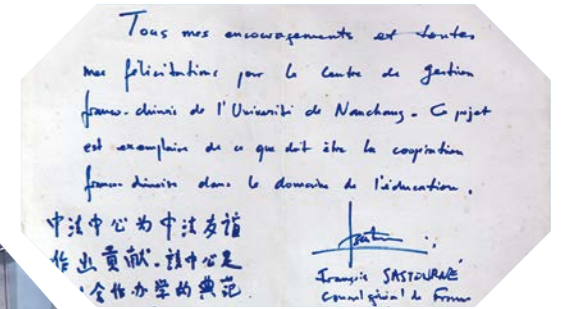 Tous mes encouragements et toutes
mes félicitations pour le centre de gestion
franco-chinois de l'Université de Nanchang. Ce projet
est exemplaire de ce que doit être la coopération
franco-chinoise dans le domaine de l'éducation.
中法中心为中法友谊
作出贡献. 该中心是
合作办学的典范
François SASTOURNÉ
Consul général de France